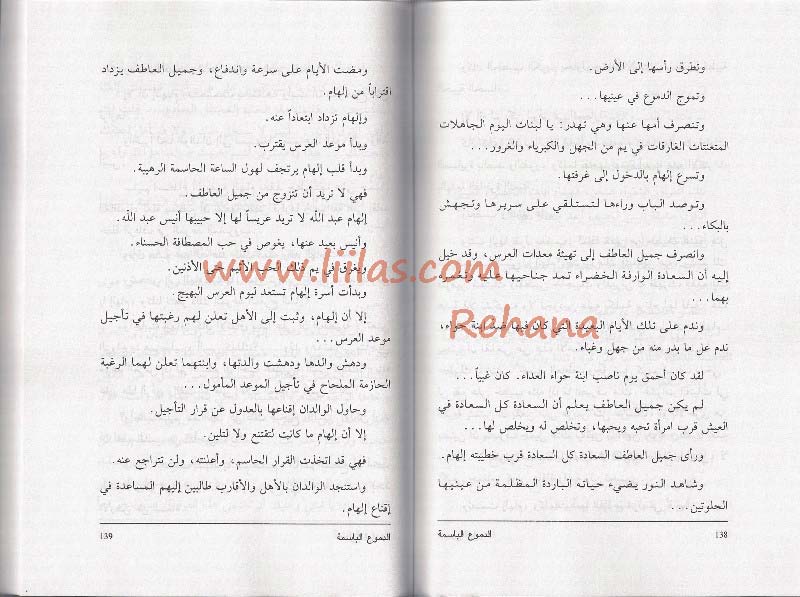 وتطرق رأسها إلى الأرض.
وتموج الدموع في عينيها...
وتنصرف أمها عنها وهي تهدر: يا لبنات اليوم الجاهلات
المتعنتات الغارقات في يم من الجهل والكبرياء والغرور...
وتسرع إلهام بالدخول إلى غرفتها.
وتوصد الباب وراءها لتستلقي على سريرها وتجهش
بالبكاء...
وانصرف جميل العاطف إلى تهيئة معدات العرس، وقد خيل
إليه أن السعادة الوارفة الخضراء تمد جناحيها عليه وتغمره
بهما...
وندم على تلك الأيام البعيدة التي كان فيها ضد ابنة حواء،
ندم على ما بدر منه من جهل وغباء.
لقد كان أحمق يوم ناصب ابنة حواء العداء. كان غبياً...
لم يكن جميل العاطف يعلم أن السعادة كل السعادة في
العيش قرب امرأة تحبه ويحبها، وتخلص له ويخلص لها...
ورأى جميل العاطف السعادة كل السعادة قرب خطيبته إلهام.
وشاهد النور يضيء حياته الباردة المظلمة من عينيها
الحلوتين...
138
الدموع الباسمة
ومضت الأيام على سرعة واندفاع، وجميل العاطف يزداد
اقتراباً من إلهام.
وإلهام تزداد ابتعاداً عنه.
وبدأ موعد العرس يقترب.
وبدأ قلب إلهام يرتجف لهول الساعة الحاسمة الرهيبة.
فهي لا تريد أن تتزوج من جميل العاطف.
إلهام عبد الله لا تريد عريساً لها إلا حبيبها أنيس عبد الله.
وأنيس بعيد عنها، يغوص في حب المصطافة الحسناء.
ويغرق في يم ذلك الحب الأثيم حتى الأذنين.
وبدأت أسرة إلهام تستعد ليوم العرس البهيج.
إلا أن إلهام، وثبت إلى الأهل تعلن لهم رغبتها في تأجيل
موعد العرس...
ودهش والدها ودهشت والدتها، وابنتهما تعلن لهما الرغبة
الحازمة الملحاح في تأجيل الموعد المأمول...
وحاول الوالدان إقناعها بالعدول عن قرار التأجيل.
إلا أن إلهام ما كانت لتقتنع ولا لتلين.
فهي قد اتخذت القرار الحاسم، وأعلنته، ولن تتراجع عنه.
واستنجد الوالدان بالأهل والأقارب طالبين إليهم المساعدة في
إقناع إلهام.
الدموع الباسمة
139
www.liilas.com
Rehana